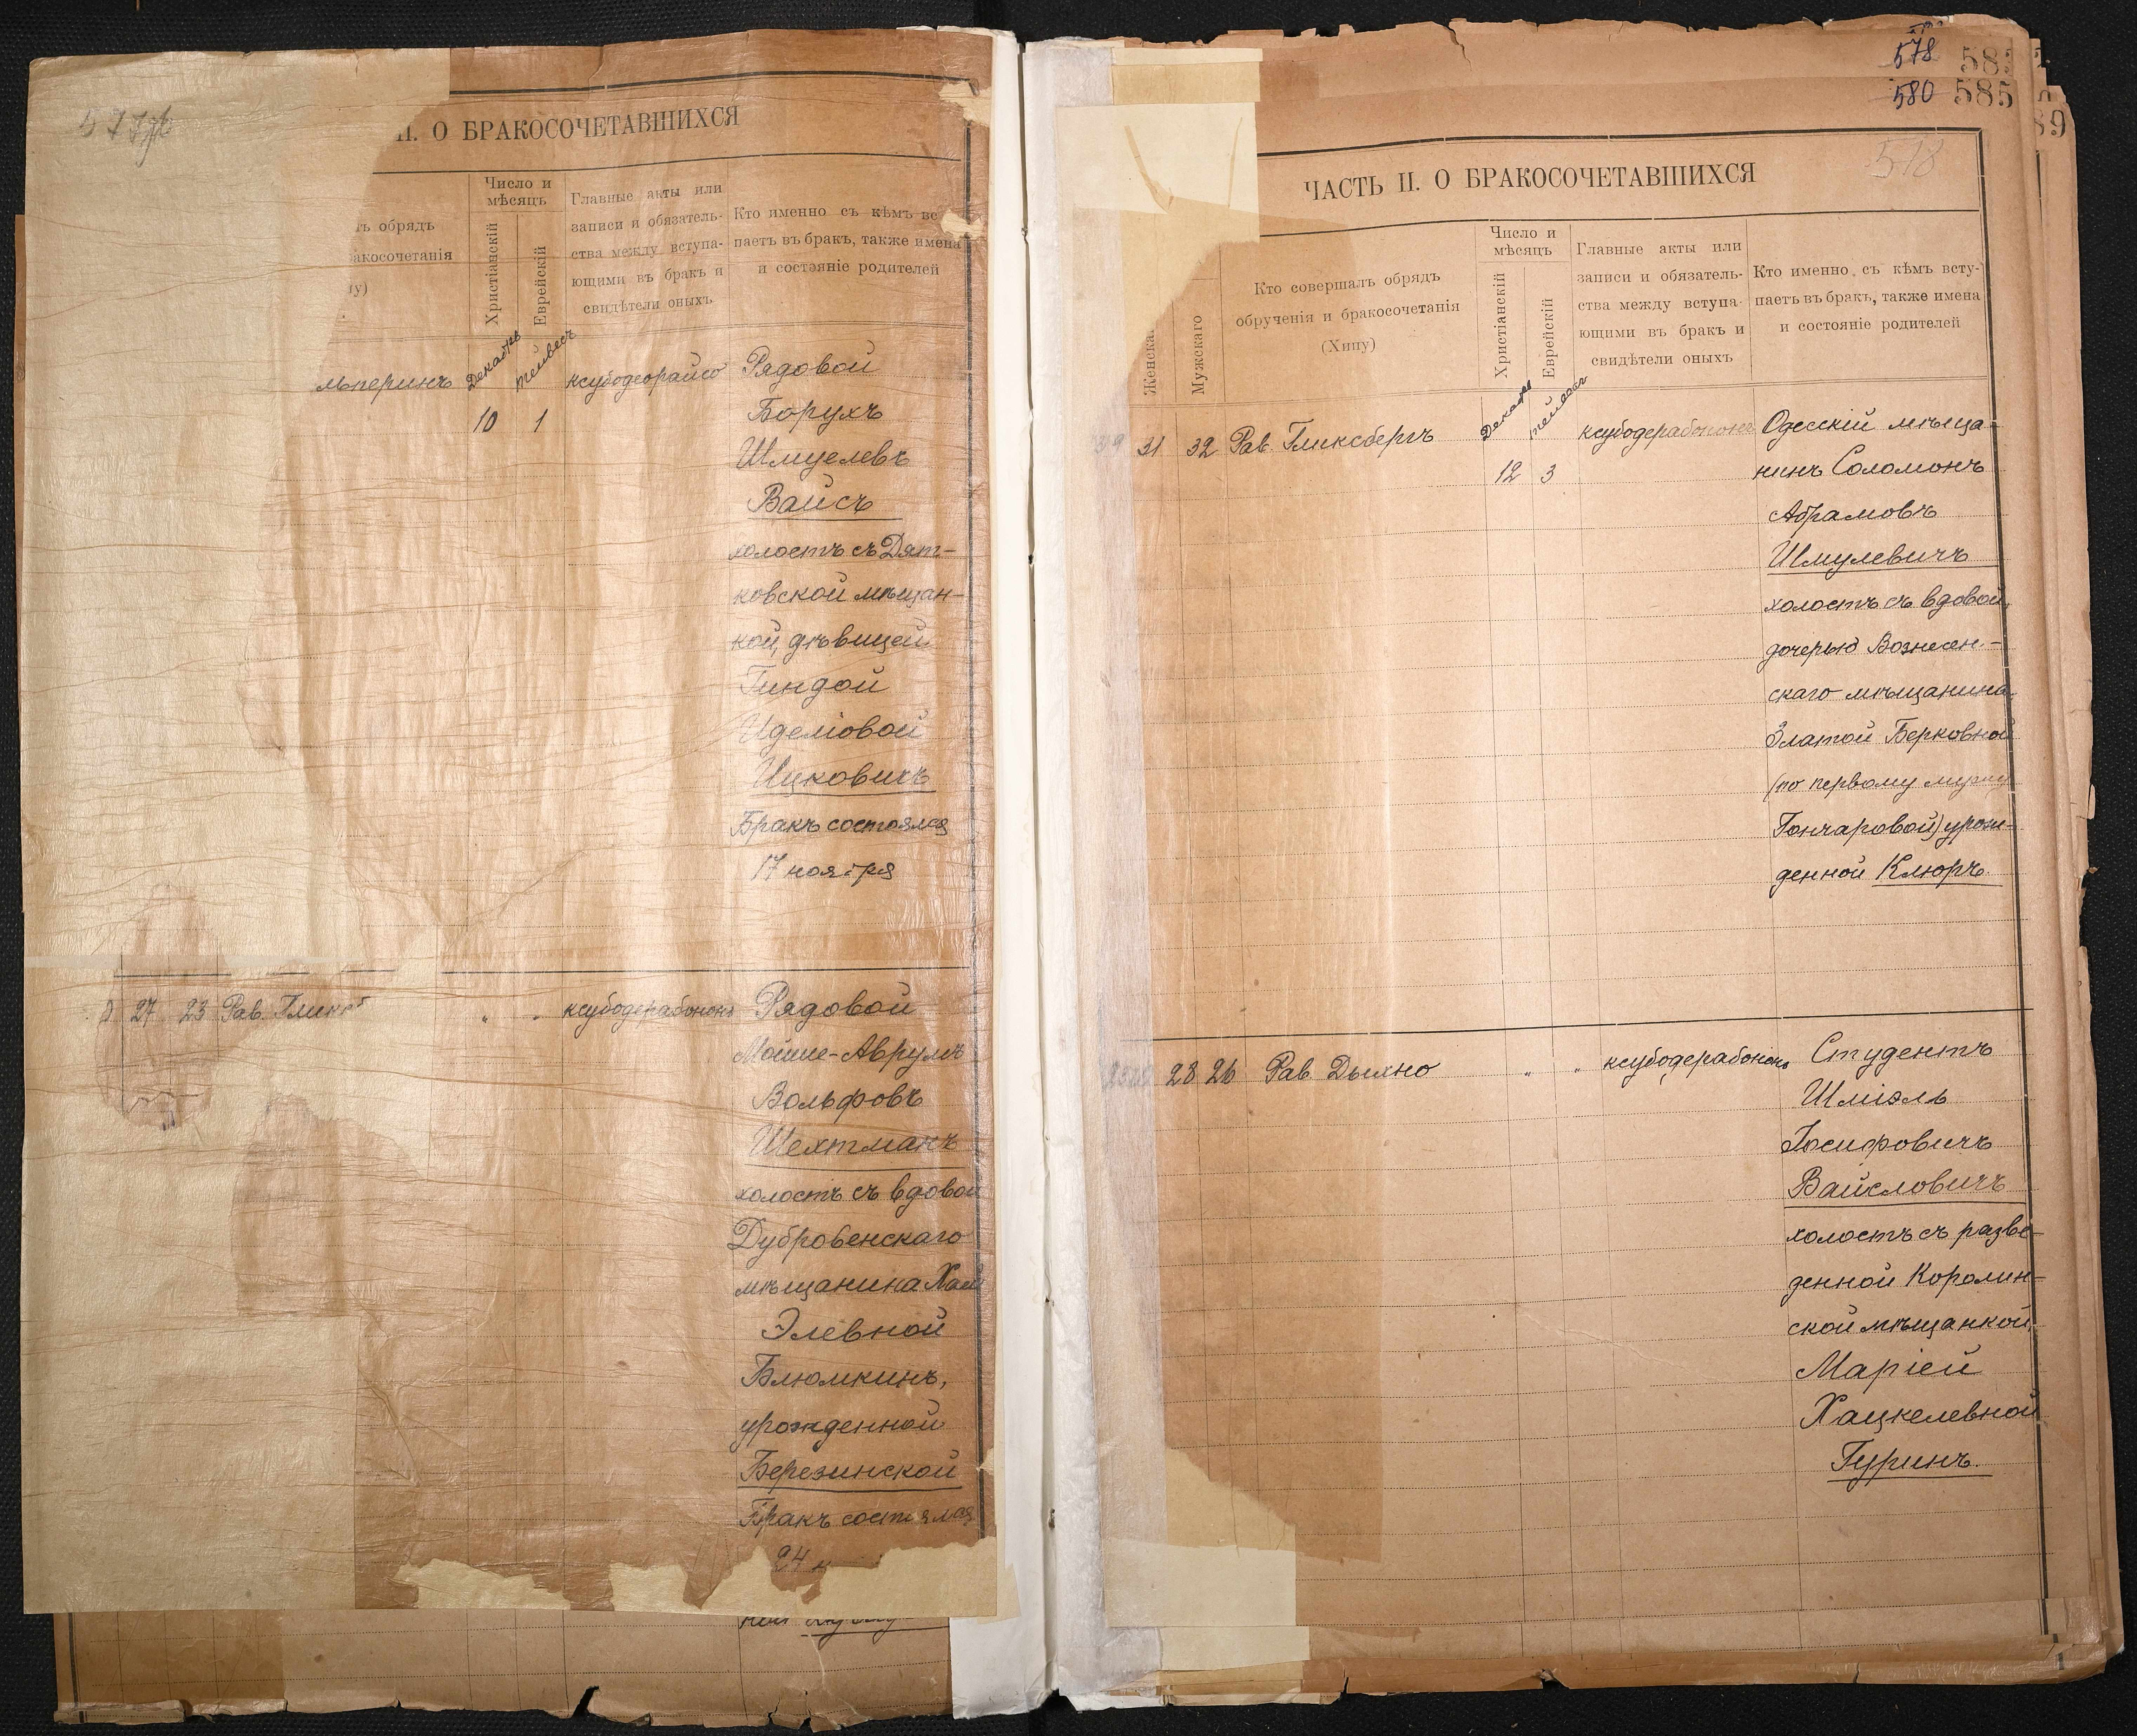 577об
II. О БРАКОСОЧЕТАВШИХСЯ
ъ обрядъ
акосочетанія
ну)
Число и
мѣсяцъ
Христіанскій
Еврейскій
Главные акты или
записи и обязатель-
ства между вступа-
ющими въ бракъ и
свидѣтели оныхъ
Кто именно съ кѣмъ вс
паетъ въ бракъ, также имена
и состояніе родителей
льперинъ
10 1
Рядовой
Борухъ
Шмуелевъ
Вайсъ
холостъ съ Дят-
ковской мѣщан-
кой, дѣвицей
Гиндой
Иделіовой
Ицковичъ
Бракъ состоялся
17 ноября
27 23 Рав. Гликс
" " ксубодерабононъ
Рядовой
Мойше-Аврумъ
Вольфовъ
Шехтманъ
холостъ съ вдовой
Дубровенскаго
мѣщанина
Элевной
Блюмкинъ,
урожденной
Березинской
Бракъ состоялся
24 н
578
580
585
578
ЧАСТЬ II. О БРАКОСОЧЕТАВШИХСЯ
Женска
Мужскаго
Кто совершалъ обрядъ
обрученія и бракосочетанія
(Хипу)
Число и
мѣсяцъ
Христіанскій
Еврейскій
Главные акты или
записи и обязатель-
ства между вступа-
ющими въ бракъ и
свидѣтели оныхъ
Кто именно съ кѣмъ всту-
паетъ въ бракъ, также имена
и состояніе родителей
31 32 Рав Гликсбергъ
Декабр
12 3
ксубодерабононъ
Одесскій мѣща-
нинъ Соломонъ
Абрамовъ
Шмулевичъ
холостъ съ вдовой,
дочерью Вознесен-
скаго мѣщанина
Златой Берковной
(по первому мужу
Гончаровой) урож-
денной Клюръ.
28 26 Рав Дыхно
" " ксубодерабононъ
Студентъ
Шміэль
Іосифовичъ
Вайсловичъ
холостъ съ разве-
денной Королин-
ской мѣщанкой,
Маріей
Хацкелевной
Гуринъ.